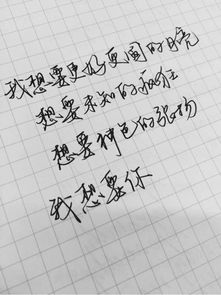 我想要更好更圆的月亮
想要未知的疯狂
想要神色的张扬
我想要你